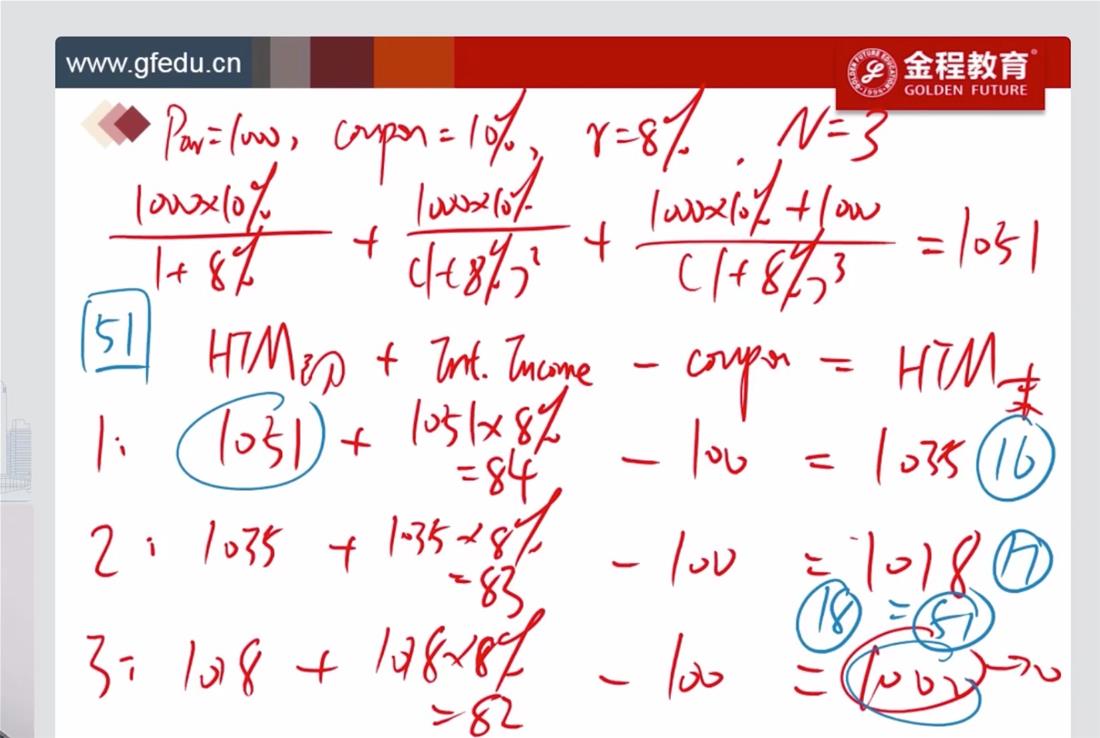 www.gfedu.cn
金程教育®
GOLDEN FUTURE
Par=1000, coupon=10%, r=8%. N=3
1000×10% / 1+8% + 1000×10% / (1+8%)² + 1000×10%+1000 / (1+8%)³ = 1051
51
HTM初 + Int. Income - coupon = HTM末
1: 1051 + 1051×8% =84 - 100 = 1035 16
2: 1035 + 1035×8% =83 - 100 = 1018 17
18 = 51
3: 1018 + 1018×8% =82 - 100 = 1000 → 0